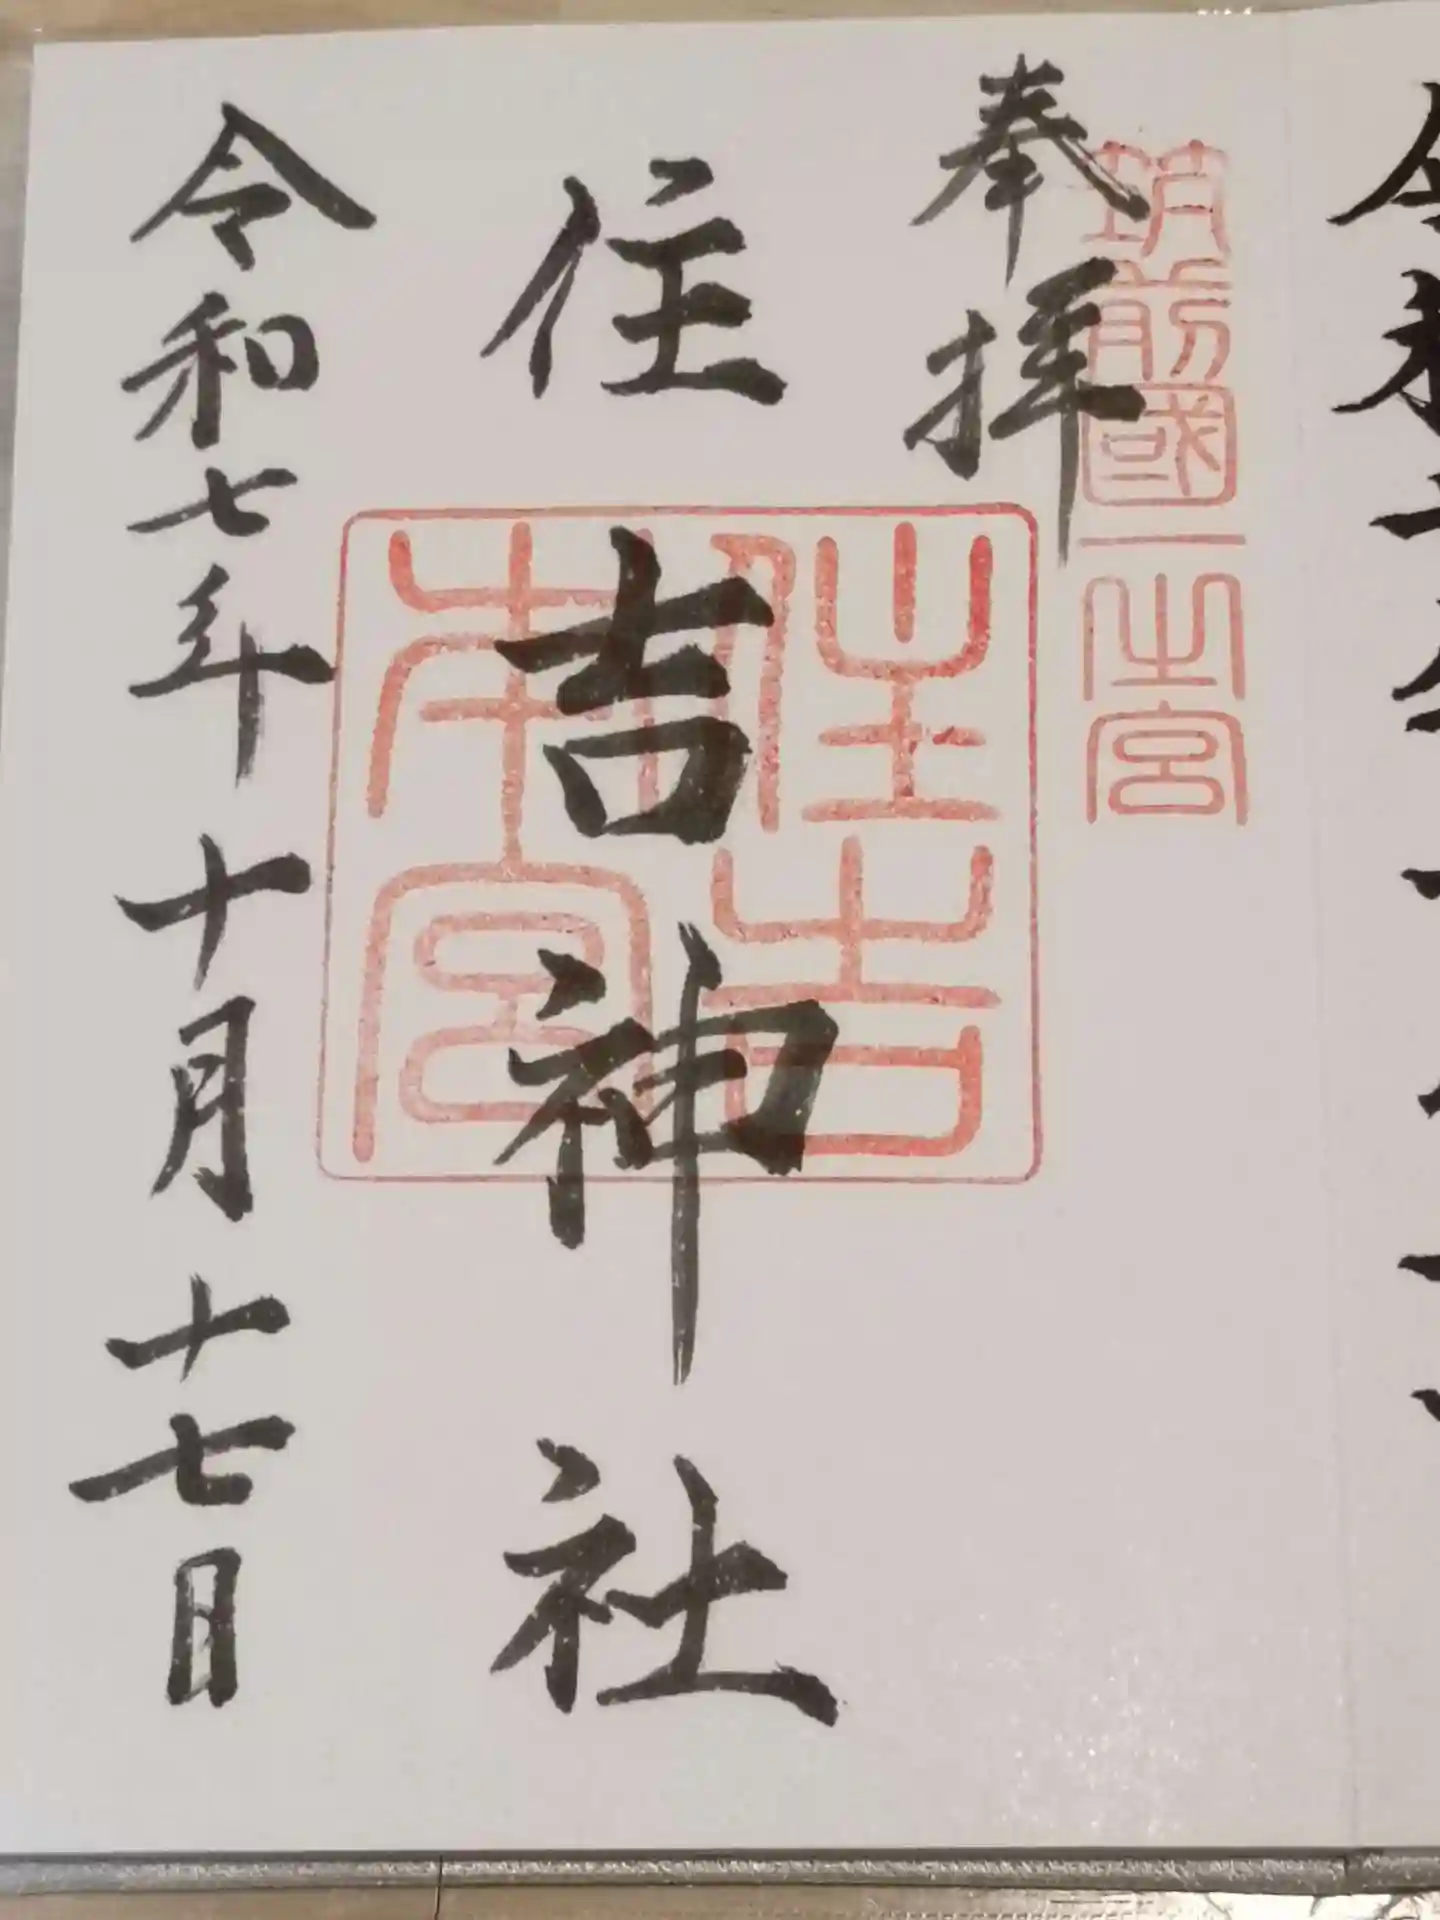 奉拝
筑前國一之宮
住吉神社
住吉本宮
令和七年十月十七日